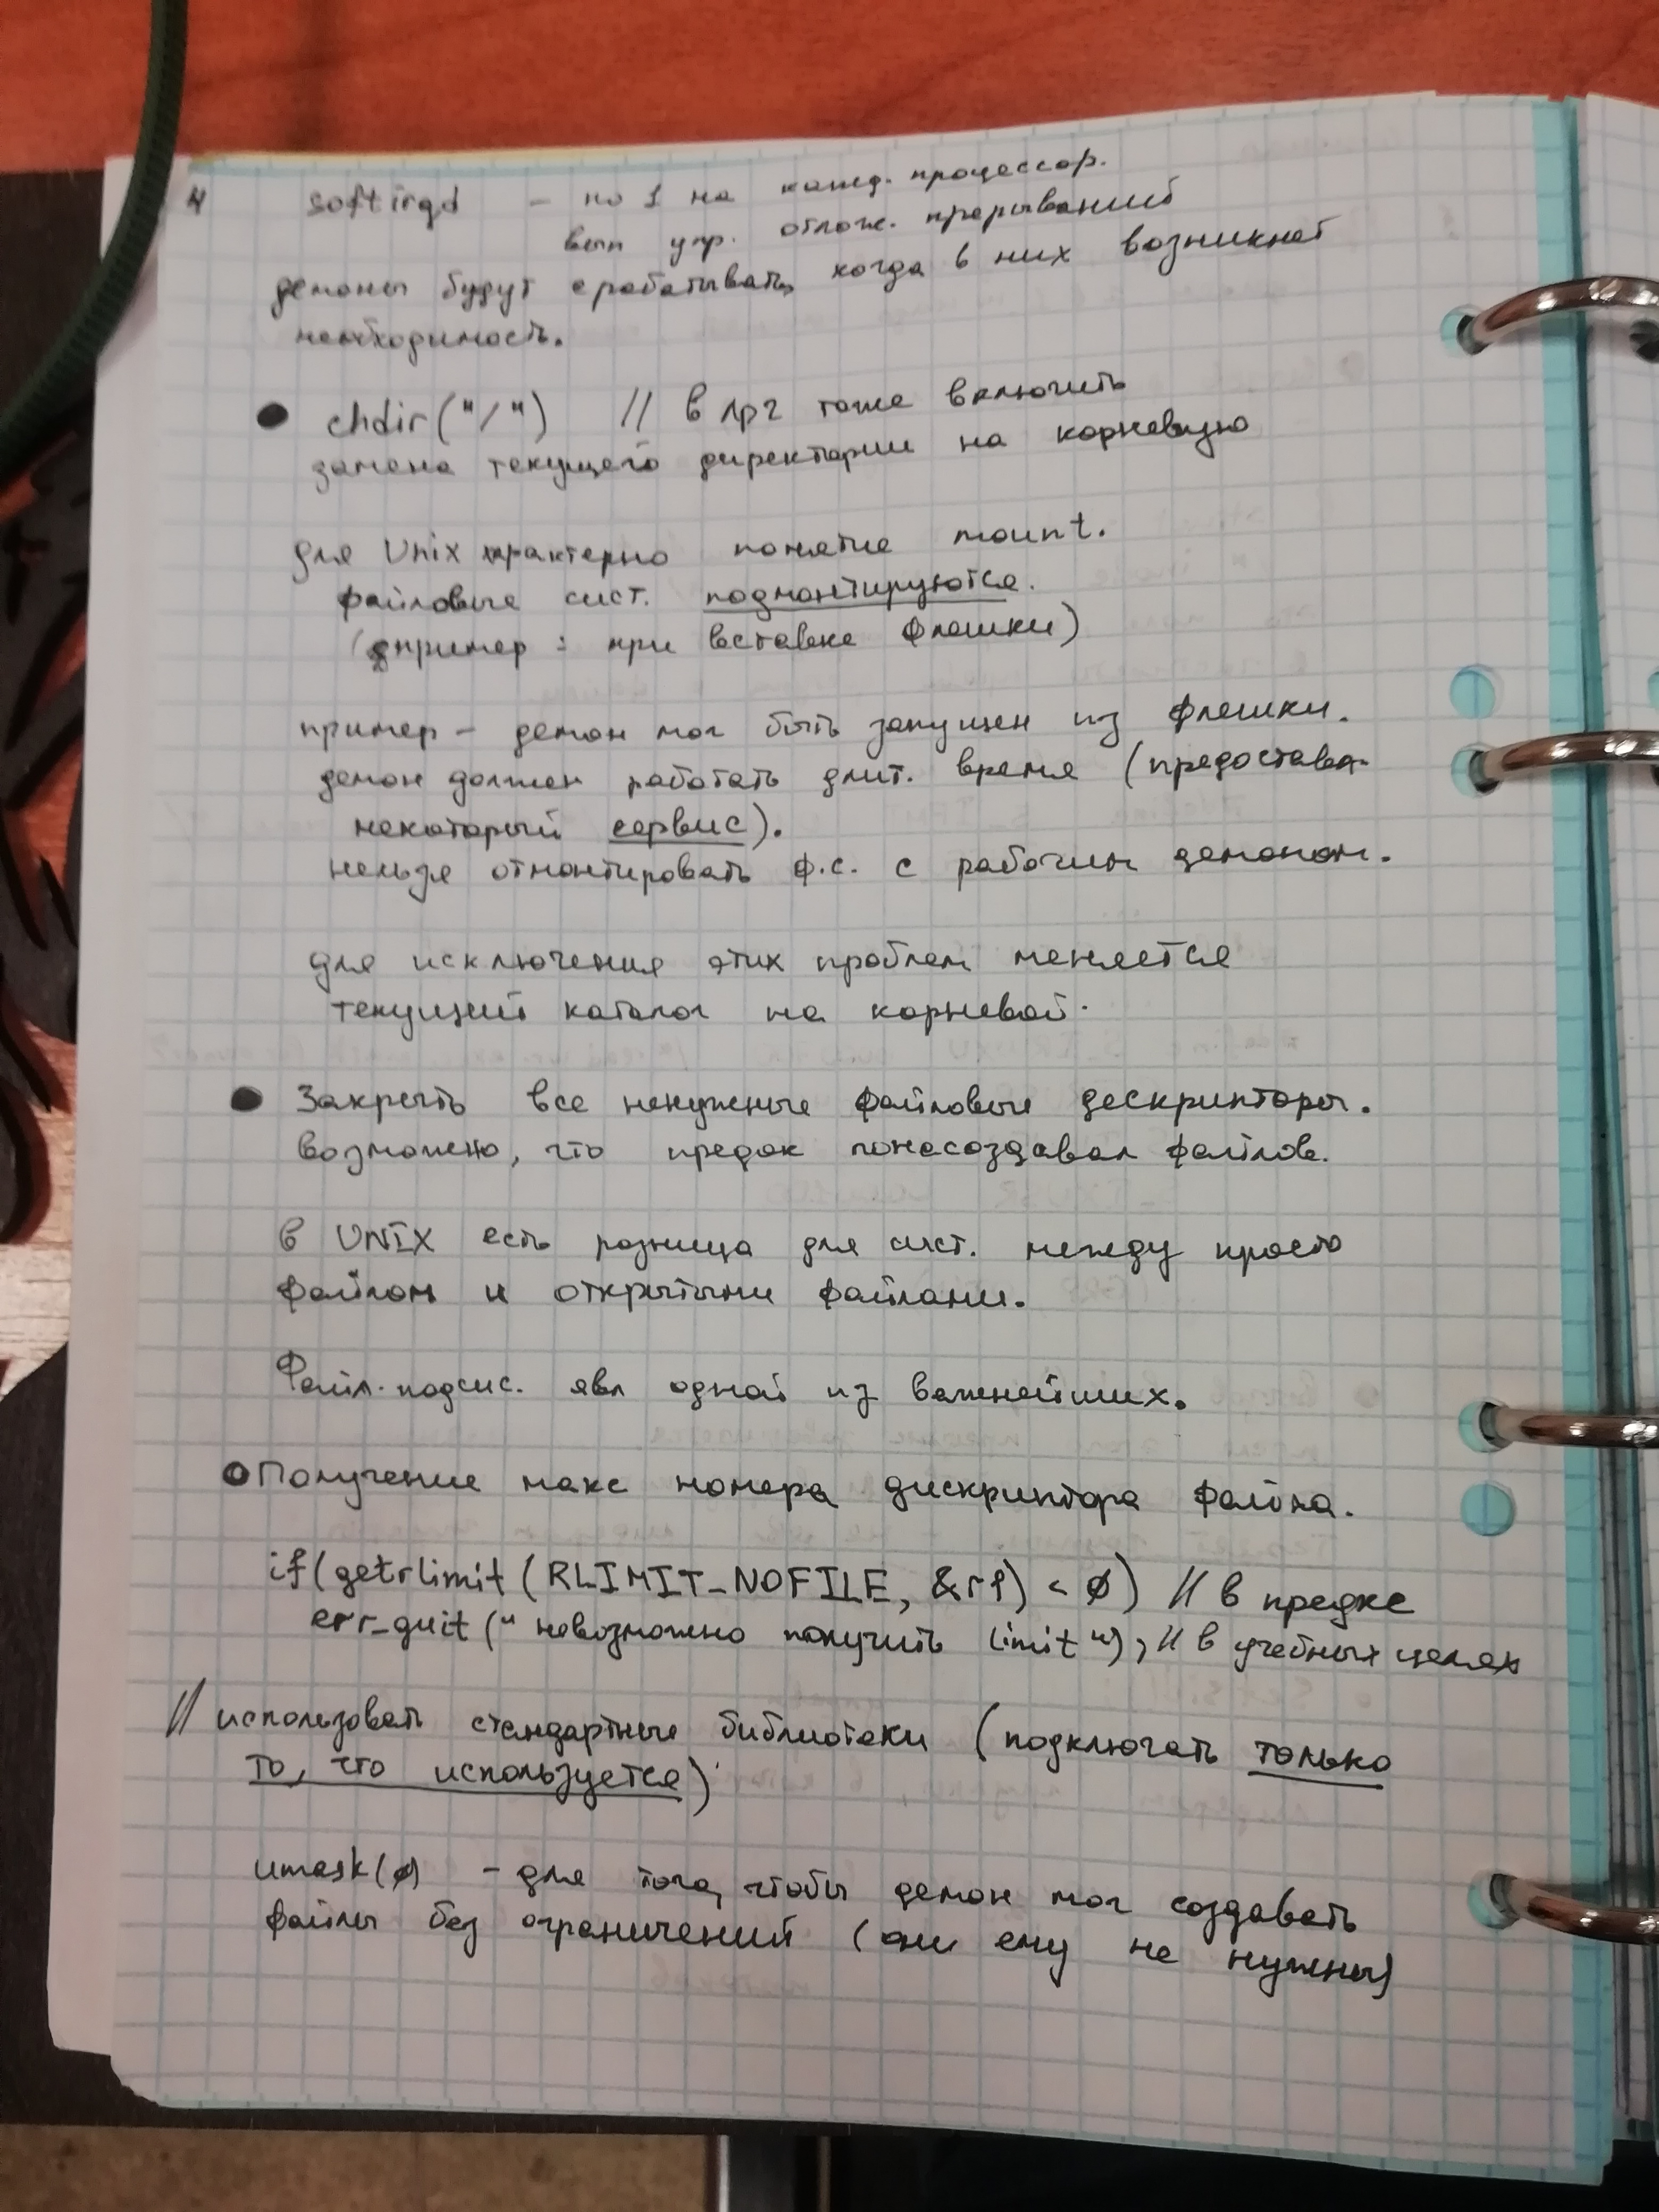 softirqd - по 1 на кажд. процессор.
вып упр. отлож. прерываний
демоны будут срабатывать, когда в них возникнет
необходимость.
● chdir("/") // в лр2 тоже включить
замена текущего директории на корневую
для Unix характерно понятие mount.
файловые сист. подмонтируются.
(пример : при вставке флешки)
пример - демон мог быть запущен из флешки.
демон должен работать длит. время (предоставл.
некоторый сервис).
нельзя отмонтировать ф.с. с рабочим демоном.
для исключения этих проблем меняется
текущий каталог на корневой.
● Закрыть все ненужные файловые дескрипторы.
возможно, что предок понасоздавал файлов.
в UNIX есть разница для сист. между просто
файлом и открытыми файлами.
Файл. подсис. явл одной из важнейших.
● Получение макс номера дискриптора файла.
if(getrlimit(RLIMIT_NOFILE, &rl) < 0) // в предке
err_quit("невозможно получить limit"); // в учебных целях
// использовать стандартные библиотеки (подключать только
то, что используется)
umask(0) - для того, чтобы демон мог создавать
файлы без ограничений (они ему не нужны)